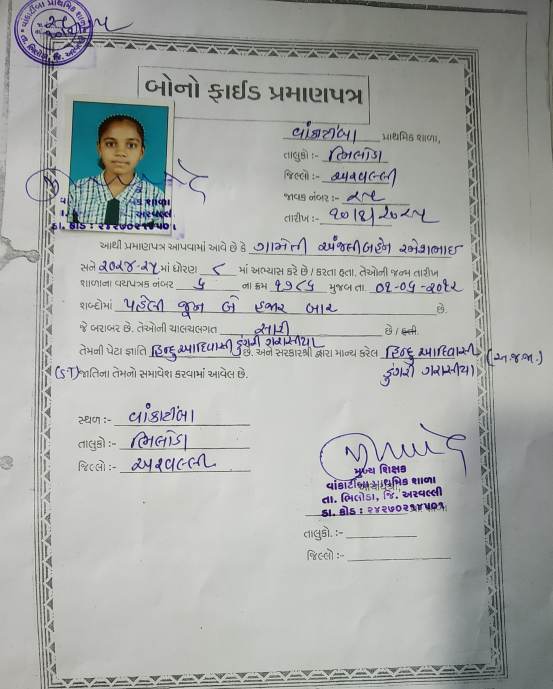 બોનો ફાઈડ પ્રમાણપત્ર
વાંકાટીંબા પ્રાથમિક શાળા,
તાલુકો :- ભિલોડા
જિલ્લો :- અરવલ્લી
જાવક નંબર :-
તારીખ :-
આથી પ્રમાણપત્ર આપવામાં આવે છે કે ગામેતી અંજલીબહેન રમેશભાઈ
સને ૨૦૨૪-૨૫ માં ધોરણ ૮ માં અભ્યાસ કરે છે / કરતા હતા. તેઓની જન્મ તારીખ
શાળાના વયપત્રક નંબર ૫ ના ક્રમ ૧૭૮૬ મુજબ તા. ૦૧-૦૬-૨૦૧૨
શબ્દોમાં પહેલી જૂન બે હજાર બાર છે.
જે બરાબર છે. તેઓની ચાલચલગત સારી છે / હતી.
તેમની પેટા જ્ઞાતિ હિન્દુ આદિવાસી ડુંગરી ગરાસીયા છે. અને સરકારશ્રી દ્વારા માન્ય કરેલ હિન્દુ આદિવાસી ડુંગરી ગરાસીયા (અ.જ.જા.)
(ST) જાતિના તેમનો સમાવેશ કરવામાં આવેલ છે.
સ્થળ :- વાંકાટીંબા
તાલુકો :- ભિલોડા
જિલ્લો :- અરવલ્લી
મુખ્ય શિક્ષક
વાંકાટીંબા પ્રાથમિક શાળા
તા. ભિલોડા, જિ. અરવલ્લી
ડા. કોડ : ૨૪૨૭૦૨૧૪૫૦૧
તાલુકો. :-
જિલ્લો :-